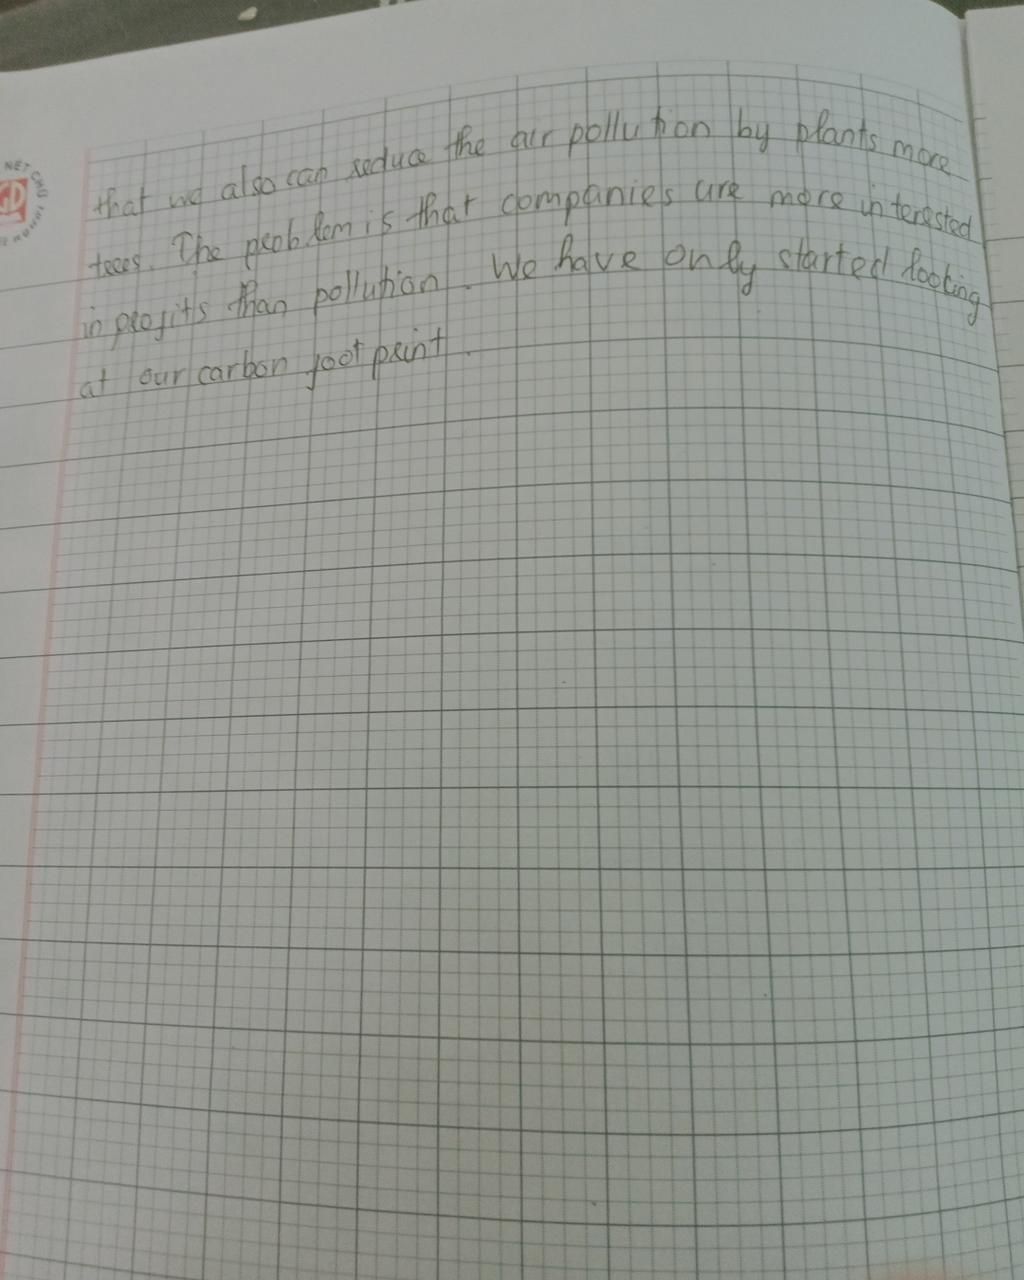 that we also can reduce the air pollution by plants more
trees. The problem is that companies are more interested
in profits than pollution. We have only started looking
at our carbon foot print.